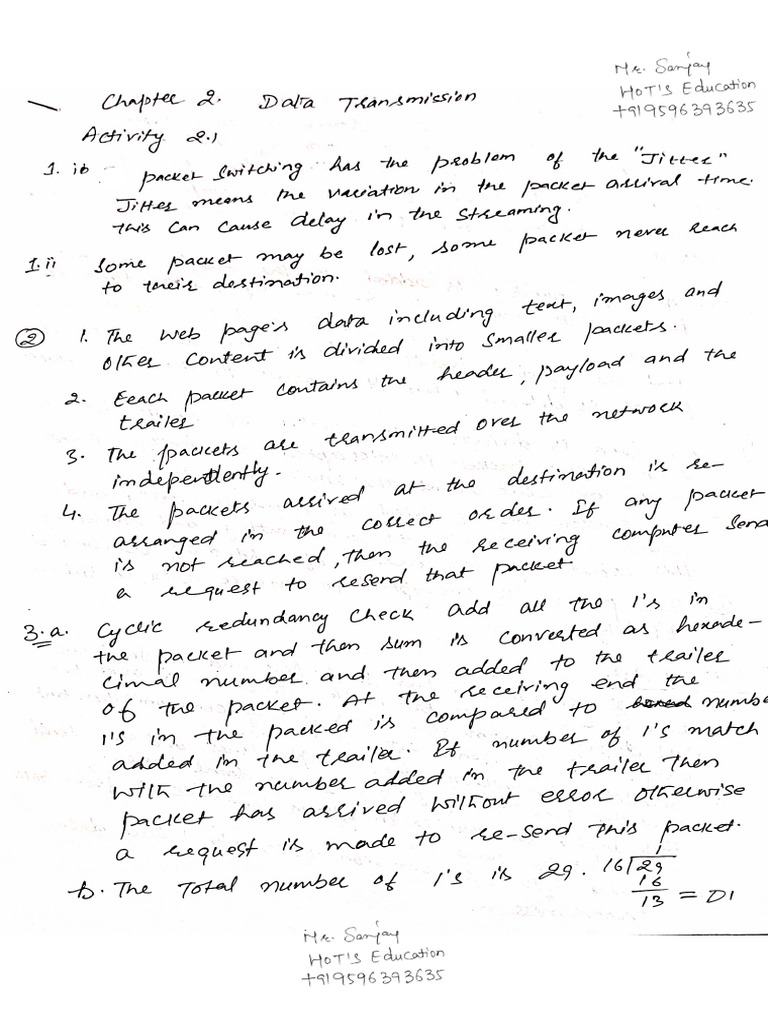 Mr. Sanjay
HOT'S Education
+919596393635
Chapter 2. Data Transmission
Activity 2.1
1. i) packet switching has the problem of the "Jitter"
Jitter means the variation in the packet arrival time.
This can cause delay in the streaming.
1.ii Some packet may be lost, some packet never reach
to their destination.
② 1. The web page's data including text, images and
other content is divided into smaller packets.
2. Eeach packet contains the header, payload and the
trailer
3. The packets are transmitted over the network
independently.
4. The packets arrived at the destination is re-
arranged in the correct order. If any packet
is not reached, then the receiving computer send
a request to resend that packet
3.a. Cyclic redundancy check add all the 1's in
the packet and then sum is converted as hexade-
cimal number and then added to the trailer
of the packet. At the receiving end the
1's in the packed is compared to number
added in the trailer. If number of 1's match
with the number added in the trailer then
packet has arrived without error otherwise
a request is made to re-send this packet.
b. The Total number of 1's is 29. 16)29
1
16
13 = D1
Mr. Sanjay
HOT'S Education
+919596393635